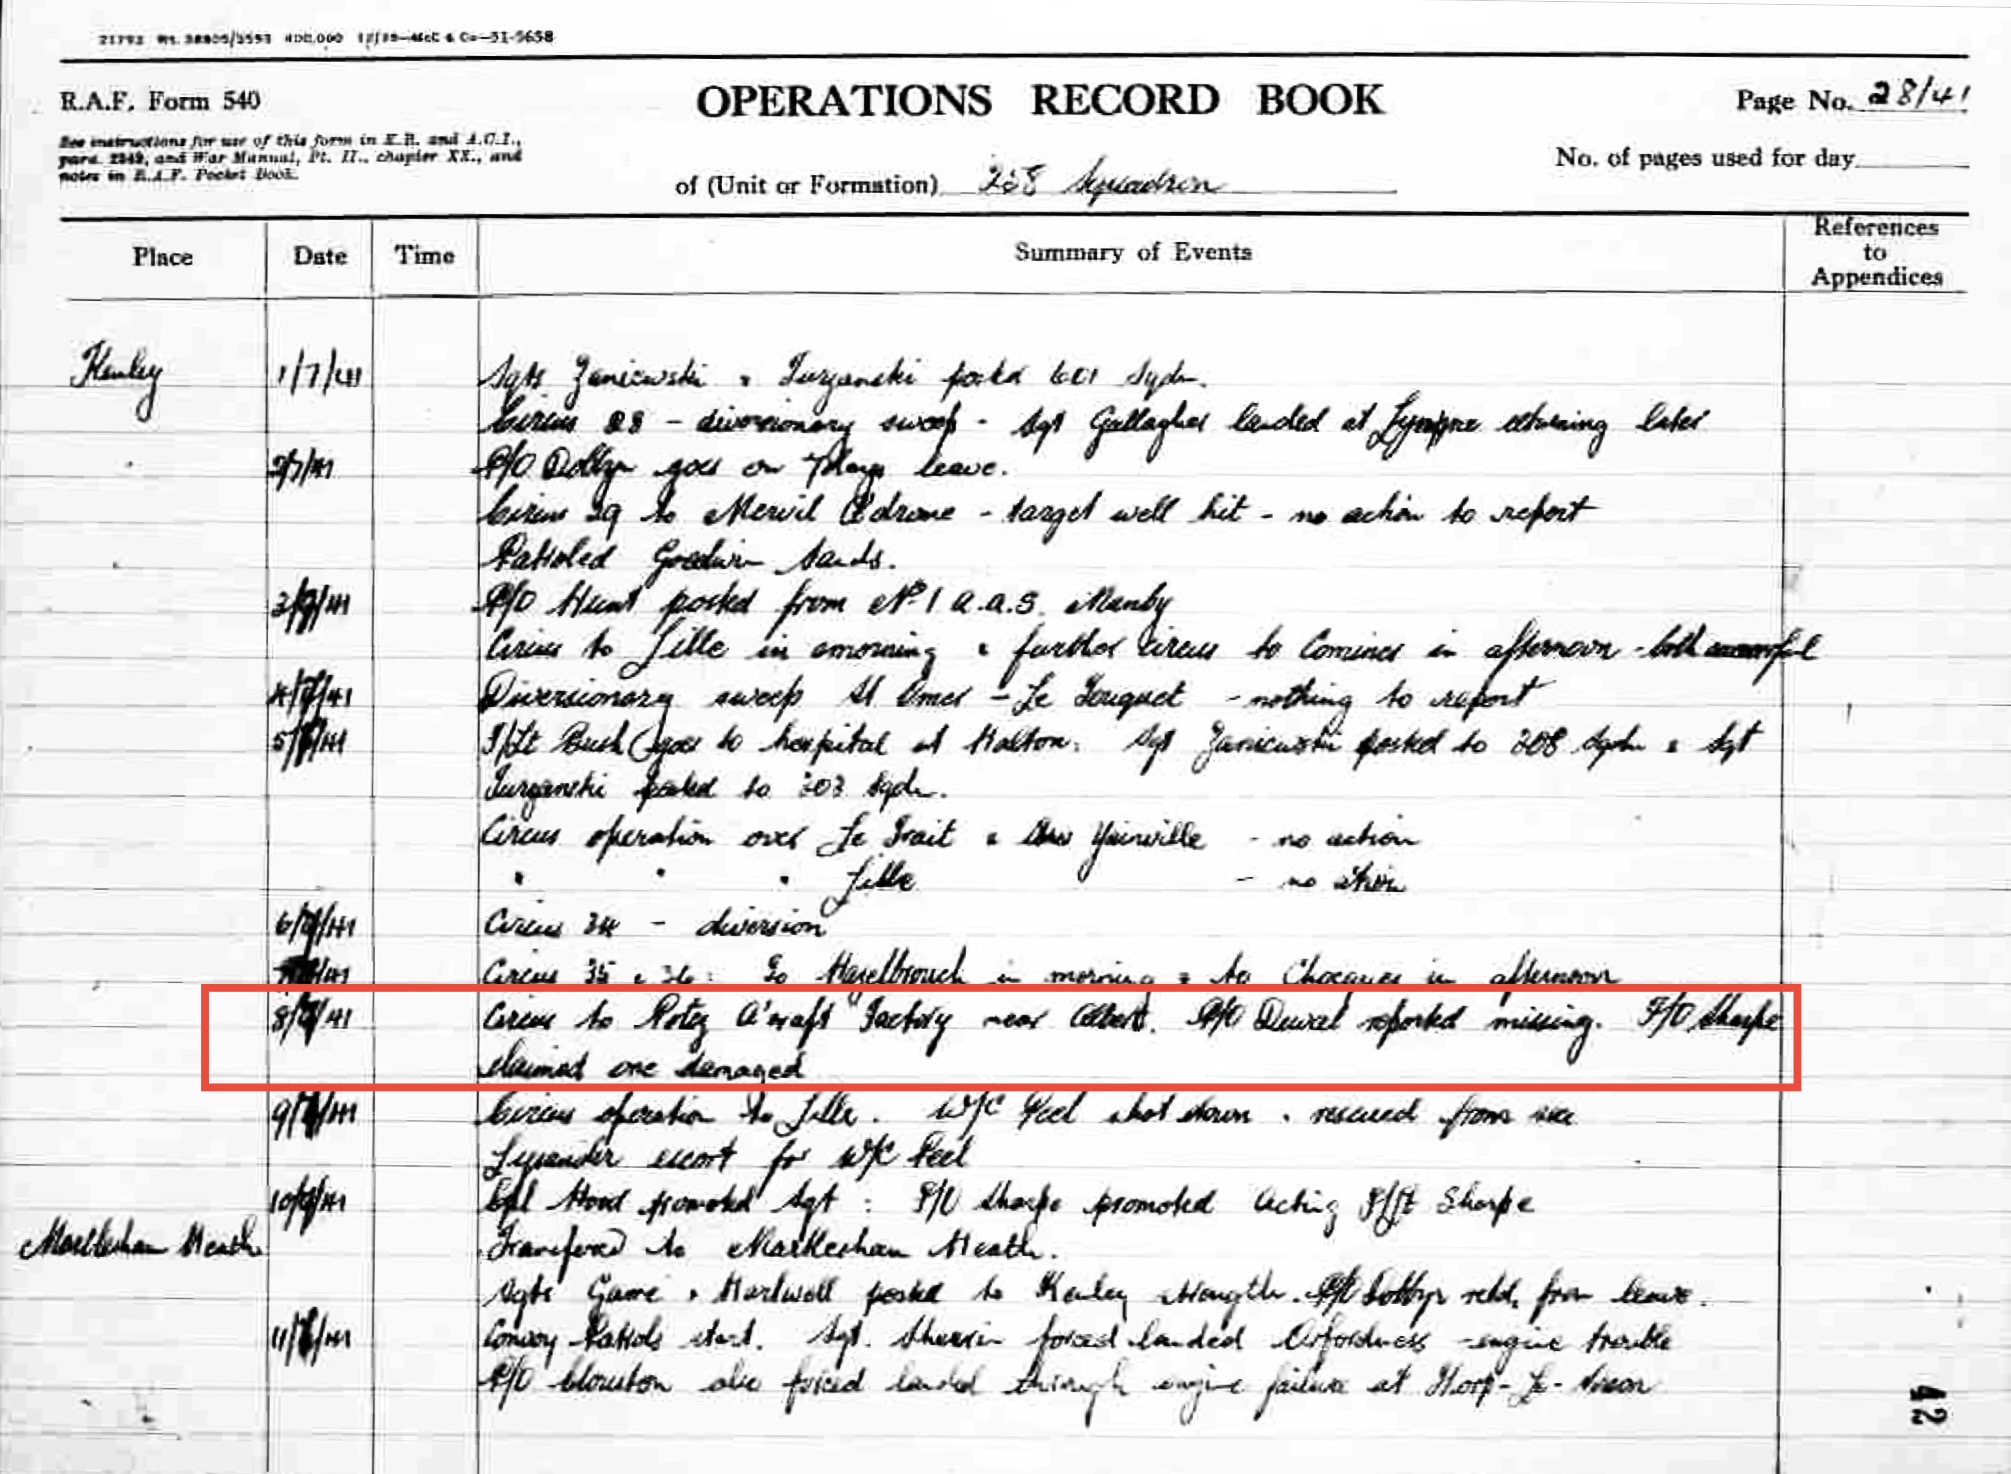 R.A.F. Form 540
See instructions for use of this form in K.R. and A.C.I.,
para. 2349, and War Manual, Pt. II., chapter XX., and
notes in R.A.F. Pocket Book.
OPERATIONS RECORD BOOK
of (Unit or Formation) 258 Squadron
Page No. 28/41
No. of pages used for day
Place Date Time Summary of Events References to Appendices
Kenley 1/7/41 Sgts Zaniewski & Turzanski posted 601 Sqdn.
Circus 28 - diversionary sweep - Sgt Gallagher landed at Lympne returning later
2/7/41 P/O Dobbyn goes on 7 days leave.
Circus 29 to Mervil A'drome - target well hit - no action to report
Patroled Goodwin Sands.
3/7/41 P/O Hunt posted from No 1 A.A.S. Manby
Circus to Lille in morning & further Circus to Comines in afternoon - both successful
4/7/41 Diversionary sweep St Omer - Le Touquet - nothing to report
5/7/41 F/Lt Bush goes to hospital at Halton. Sgt Zaniewski posted to 308 Sqdn & Sgt
Turzanski posted to 303 Sqdn.
Circus operation over Le Trait & Yainville - no action
" " " Lille - no action
6/7/41 Circus 34 - diversion
7/7/41 Circus 35 & 36: To Hazelbrouch in morning & to Chocques in afternoon
8/7/41 Circus to Potez A'craft Factory near Albert. P/O Duval reported missing. F/O Sharpe
claimed one damaged
9/7/41 Circus operation to Lille. W/C Peel shot down & rescued from sea
Lysander escort for W/C Peel
10/7/41 Cpl Hood promoted Sgt : F/O Sharpe promoted Acting F/Lt Sharpe
Martlesham Heath Transfered to Martlesham Heath.
Sgts Game & Hartwell posted to Kenley strength. P/O Dobbyn retd. from leave.
11/7/41 Convoy Patrols start. Sgt. Sherrin forced landed Orfordness - engine trouble
P/O Clouston also forced landed through engine failure at
42